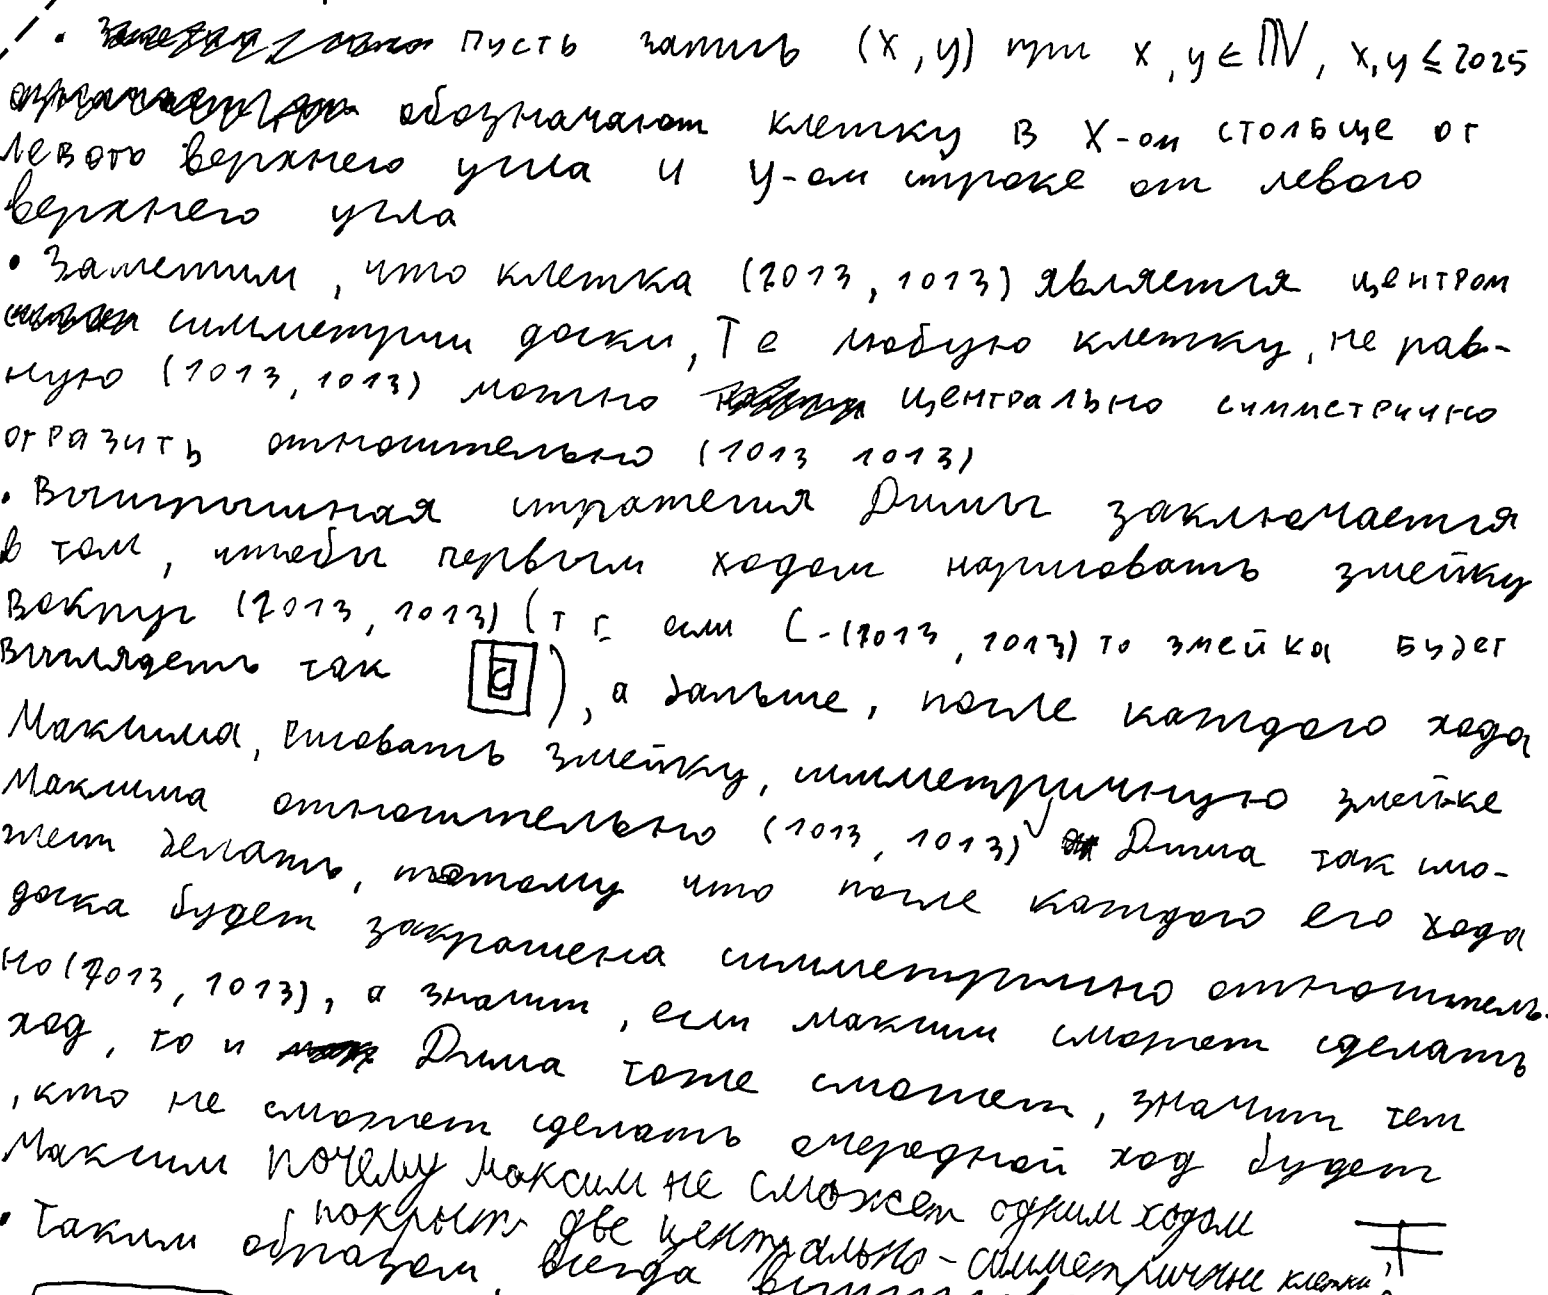 • Пусть запись (x, y) при x, y ∈ ℕ, x, y ≤ 2025
обозначают клетку в X-ом столбце от
левого верхнего угла и y-ом строке от левого
верхнего угла
• Заметим, что клетка (1013, 1013) является центром
симметрии доски, Те любую клетку, не рав-
ную (1013, 1013) можно центрально симметрично
отразить относительно (1013 1013)
• Выигрышная стратегия Димы заключается
в том, чтобы первым ходом нарисовать змейку
вокруг (1013, 1013) (т е если C - (1013, 1013) то змейка будет
выглядеть так C ), а дальше, после каждого хода
Максима, рисовать змейку, симметричную змейке
Максима относительно (1013, 1013) Дима так смо-
жет делать, потому что после каждого его хода
доска будет закрашена симметрично относитель-
но (1013, 1013), а значит, если максим сможет сделать
ход, то и Дима тоже сможет, значит тем
, кто не сможет сделать очередной ход будет
Максим почему максим не сможет одним ходом
покрыть две центрально-симметричные клетки?
• Таким образом, всегда